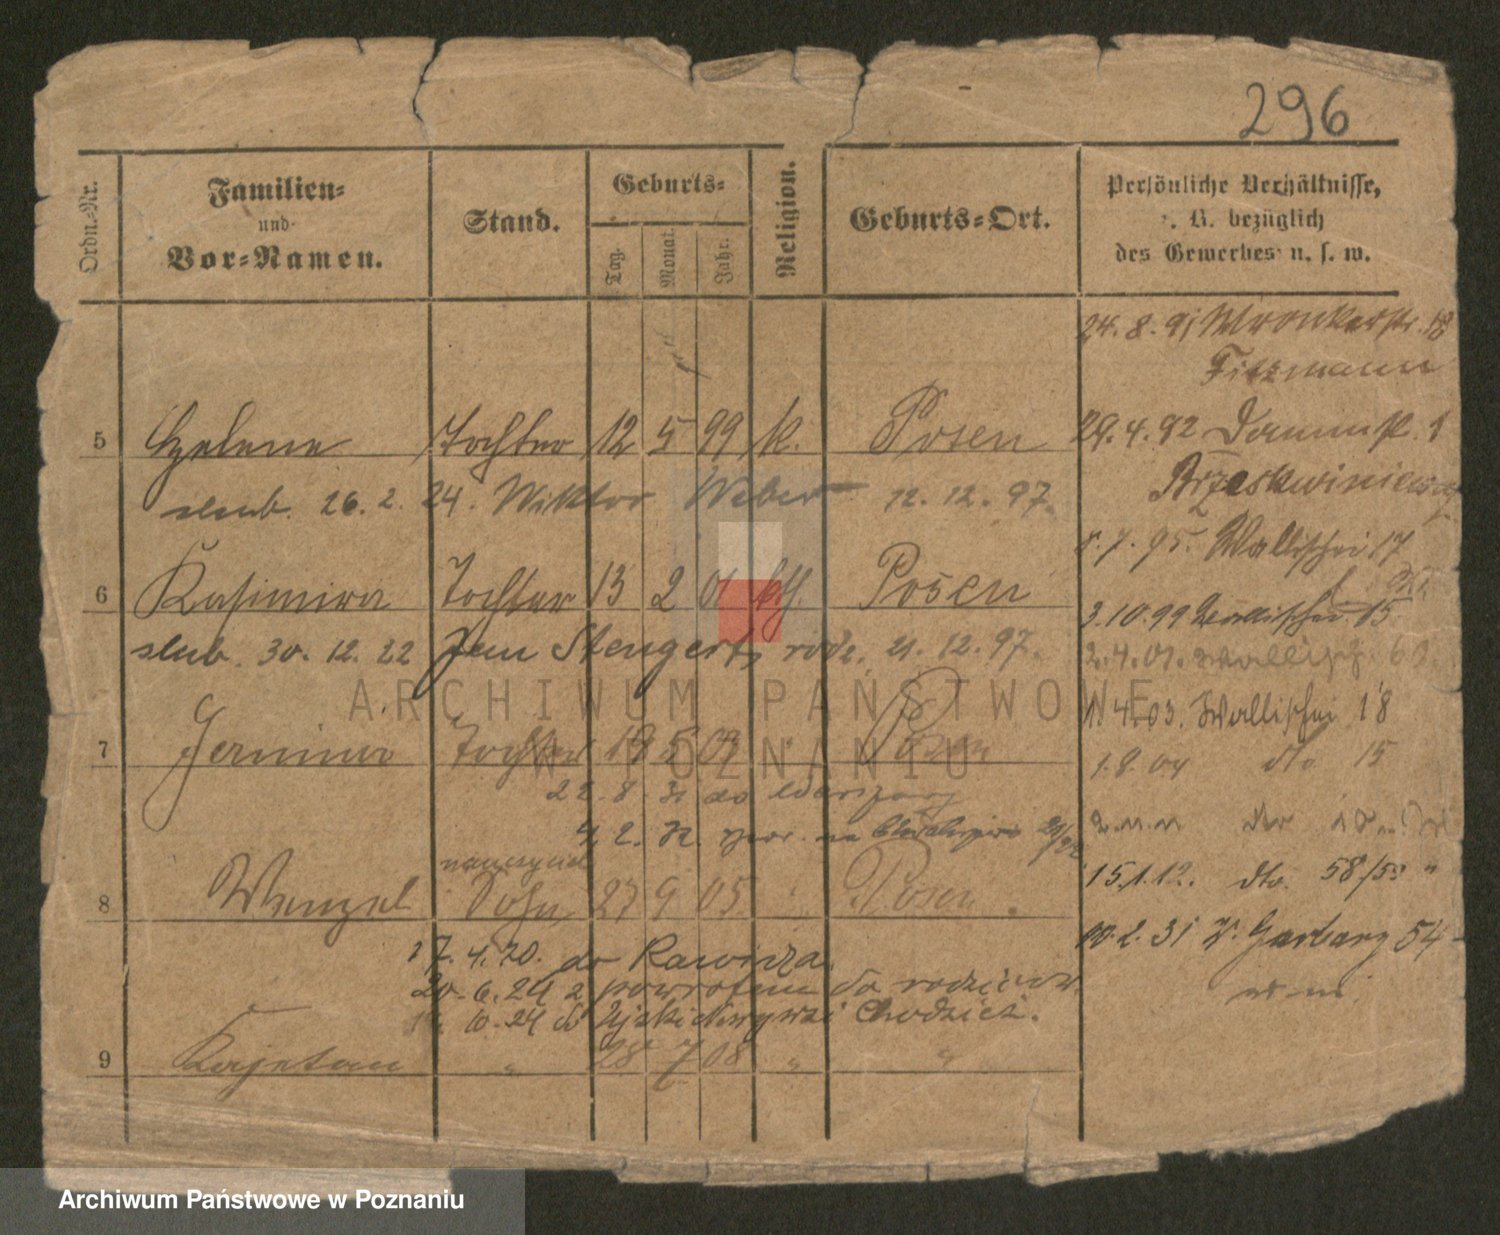 296
Ordn.-Nr.
Familien-
und
Vor-Namen.
Stand.
Geburts-
Tag.
Monat.
Jahr.
Religion.
Geburts-Ort.
Persönliche Verhältnisse,
z. B. bezüglich
des Gewerbes u. s. w.
24. 8. 91 Wronkerstr. 18
29. 4. 92 Dammstr. 1
5 Helene Tochter 12 5 99 k. Posen
slub. 26. 2. 24. Wiktor Weber 12. 12. 97.
8. 7. 95. Wallischei 17
6 Kasimira Tochter 13 2 01 kth. Posen
3. 10. 99 Wallischei 15
slub. 30. 12. 22 Jan Stengert, rodz. 21. 12. 97.
2. 4. 01. Wallisch.
4. 03. Wallischei 18
7 Tochter 19 5 03 " Posen
1. 8. 04 dto 15
22. 8. 31 do Warszawy
4. 2. 32.
15. 1. 12. dto. 58/59 "
8 Wenzel Sohn 27 9 05. " Posen.
10. 2. 31 W. Garbary 54
17. 4. 20. do Rawicza.
20. 6. 24 z powrotem do rodziców.
10. 24 do Chodzież.
9 Kajetan " 28 7 08 " "
ARCHIWUM PAŃSTWOWE
W POZNANIU
Archiwum Państwowe w Poznaniu